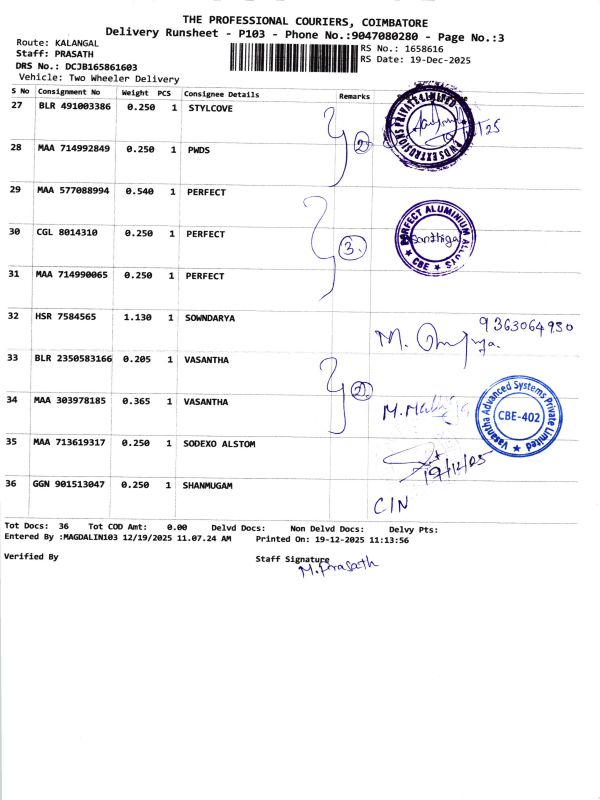 THE PROFESSIONAL COURIERS, COIMBATORE
Delivery Runsheet - P103 - Phone No.:9047080280 - Page No.:3
Route: KALANGAL
RS No.: 1658616
Staff: PRASATH
RS Date: 19-Dec-2025
DRS No.: DCJB165861603
Vehicle: Two Wheeler Delivery
S No Consignment No Weight PCS Consignee Details Remarks
27 BLR 491003386 0.250 1 STYLCOVE
28 MAA 714992849 0.250 1 PWDS
2
PWDS EXTRUSIONS PRIVATE LIMITED
29 MAA 577088994 0.540 1 PERFECT
30 CGL 8014310 0.250 1 PERFECT
3.
PERFECT ALUMINIUM ALLOYS
CBE
31 MAA 714990065 0.250 1 PERFECT
32 HSR 7584565 1.130 1 SOWNDARYA
9363064950
M.
33 BLR 2350583166 0.205 1 VASANTHA
34 MAA 303978185 0.365 1 VASANTHA
2
M.
Vasantha Advanced Systems Private Limited
CBE-402
35 MAA 713619317 0.250 1 SODEXO ALSTOM
19/12/25
36 GGN 901513047 0.250 1 SHANMUGAM
C/N
Tot Docs: 36 Tot COD Amt: 0.00 Delvd Docs: Non Delvd Docs: Delvy Pts:
Entered By :MAGDALIN103 12/19/2025 11.07.24 AM Printed On: 19-12-2025 11:13:56
Verified By Staff Signature
M.Prasath